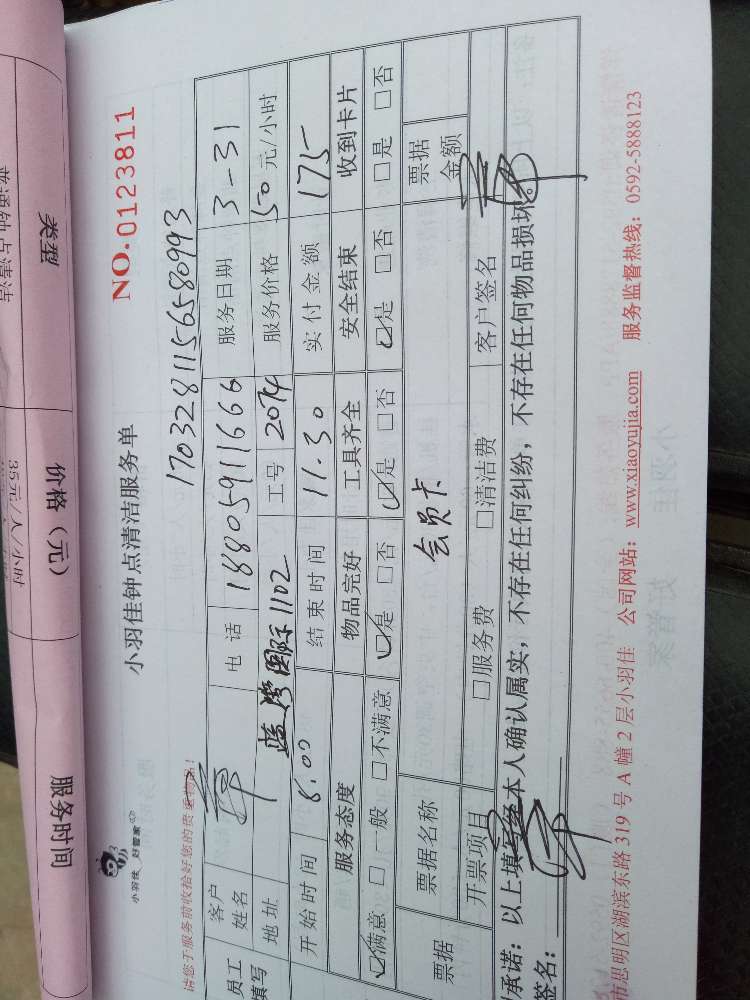 类型 价格（元） 服务时间
普通钟点清洁 35元/人/小时
小羽佳 好管家
小羽佳钟点清洁服务单 NO.0123811
请您于服务前收拾好您的贵重物品！ 1703281156580993
员工填写
客户姓名 电话 18805911666 服务日期 3-31
地址 蓝湾国际1102 工号 2074 服务价格 50元/小时
开始时间 8.00 结束时间 11.30 实付金额 175
服务态度 物品完好 工具齐全 安全结束 收到卡片
☑满意 □一般 □不满意 ☑是 □否 ☑是 □否 ☑是 □否 □是 □否
票据 票据名称 会员卡 票据金额
开票项目 □服务费 □清洁费 客户签名
承诺：以上填写经本人确认属实，不存在任何纠纷，不存在任何物品损坏。
签名：
市思明区湖滨东路 319 号 A 幢 2 层小羽佳 公司网站：www.xiaoyujia.com 服务监督热线：0592-5888123